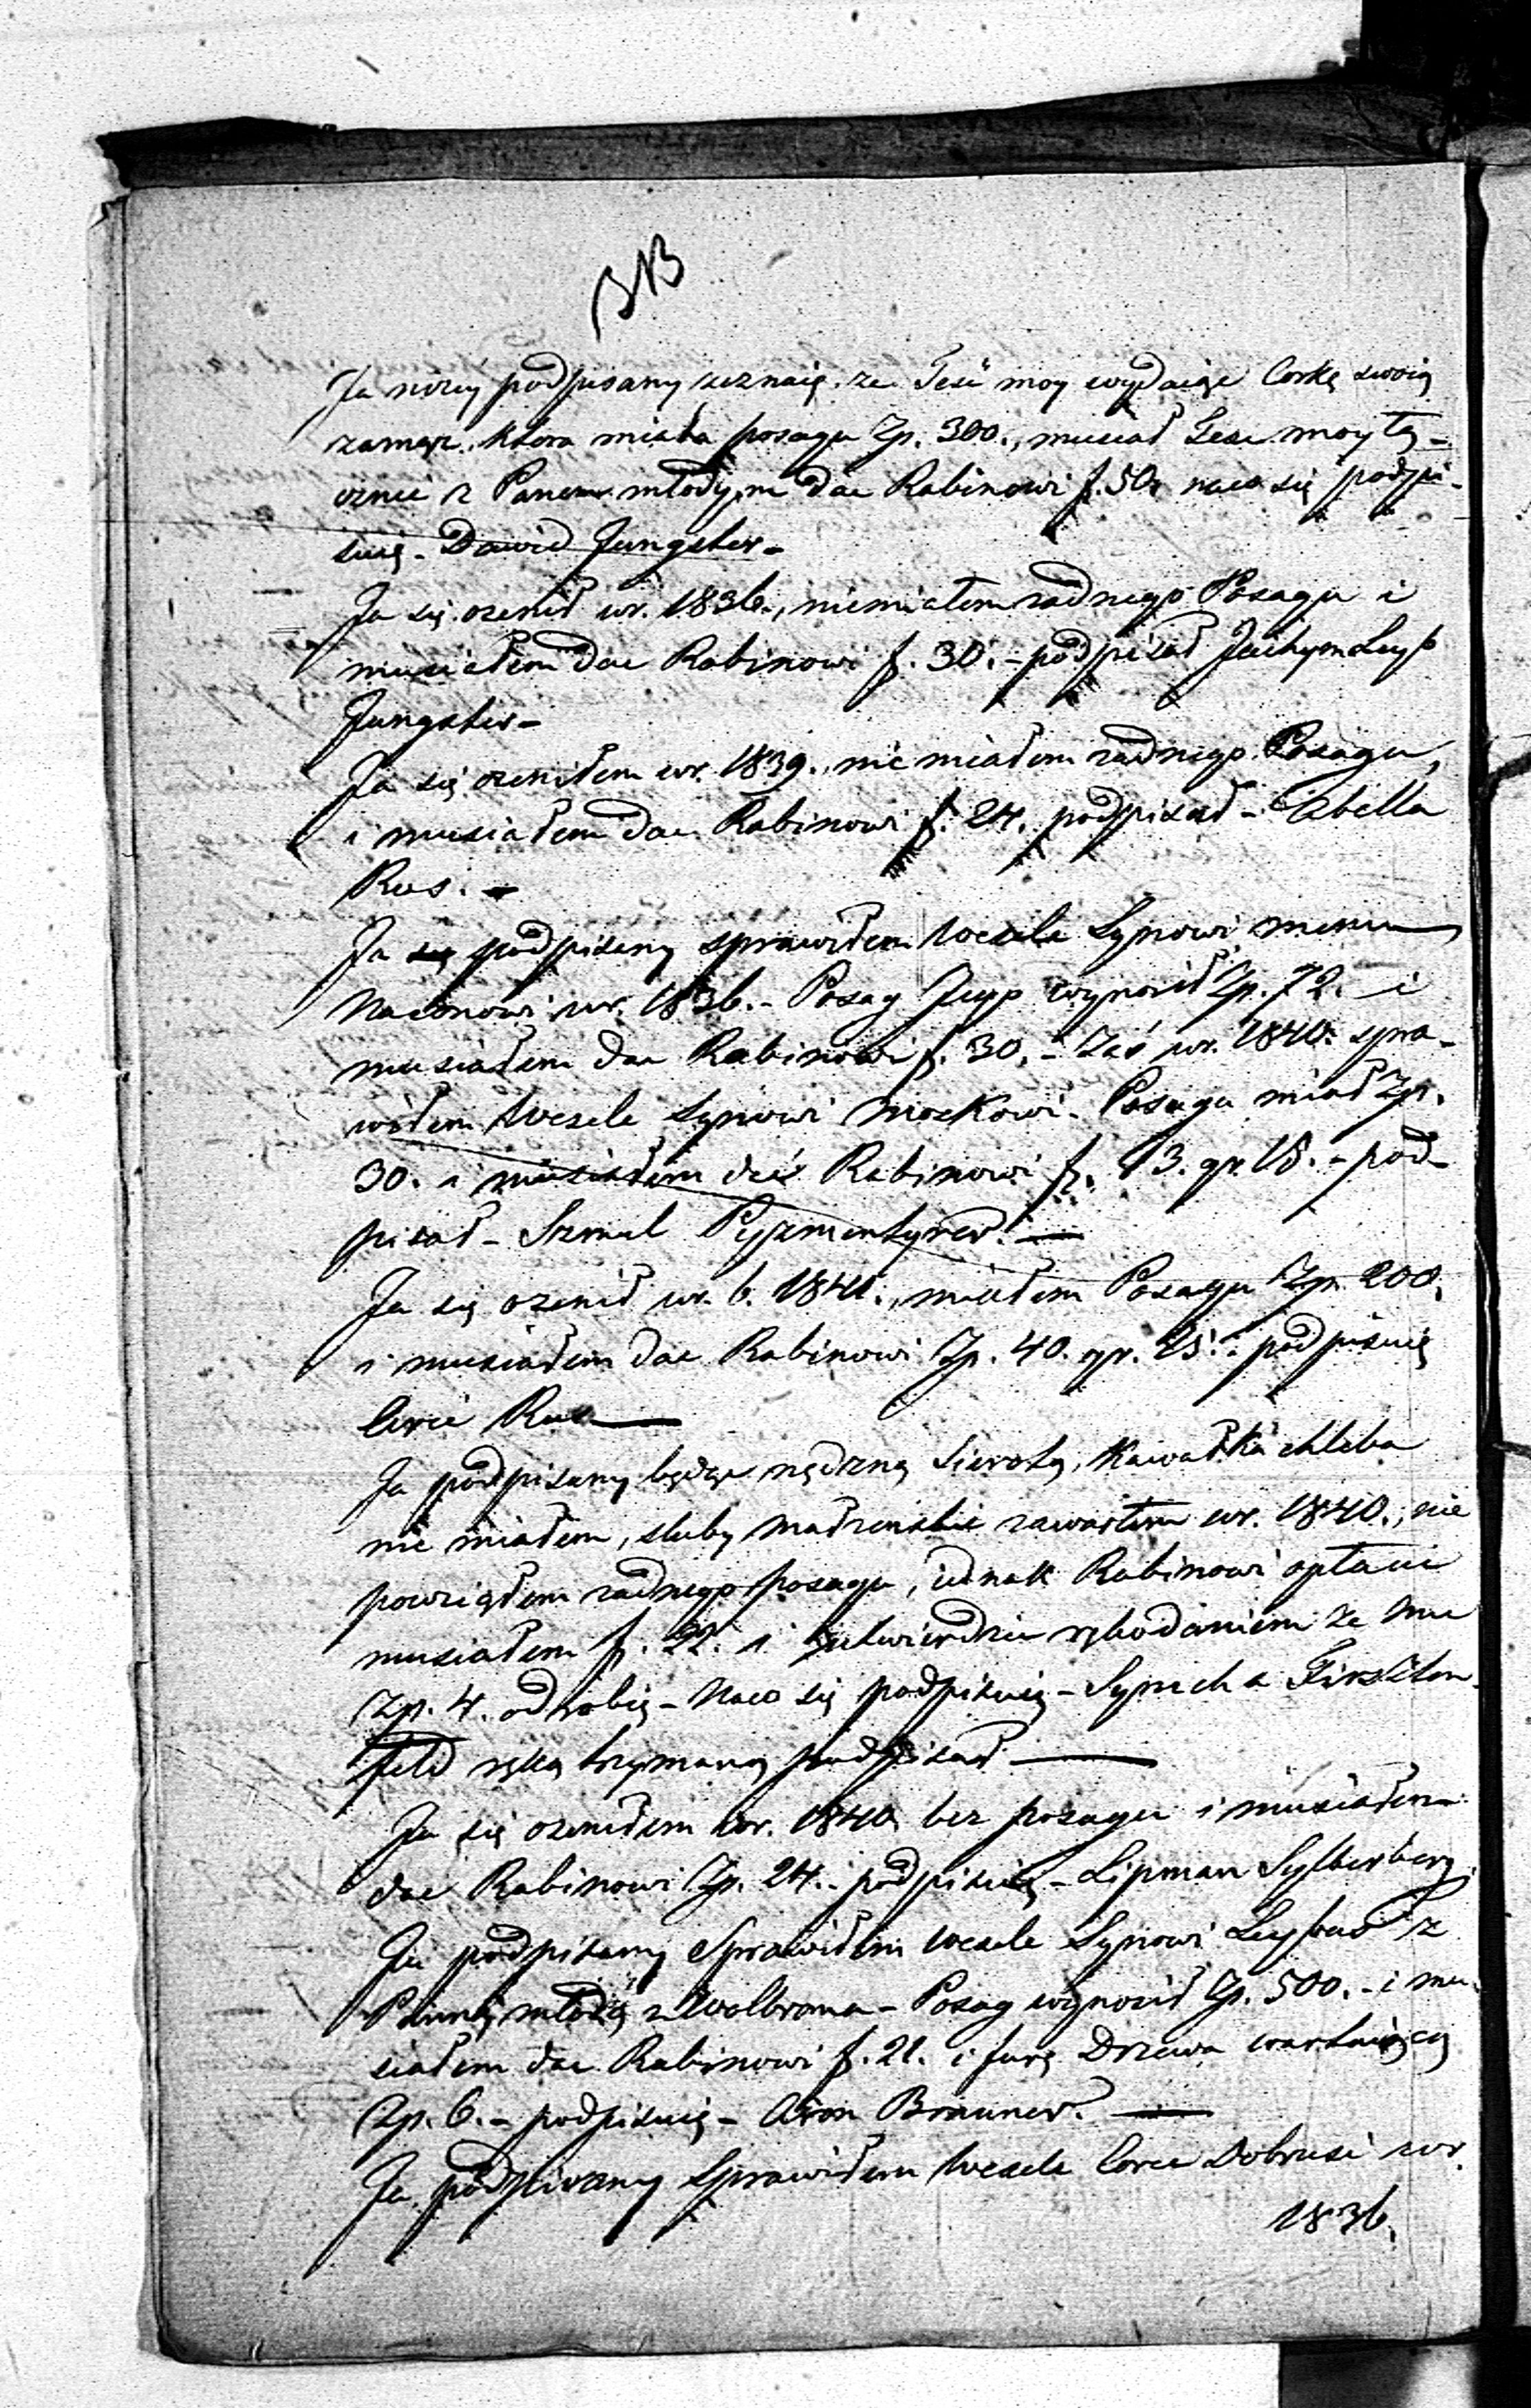 Ja niżej podpisany zeznaię, ze Teść moy wydaiąc Corkę swoią
zamąż, ktora miała posagu Zp. 300., musiał Teść moy łą-
cznie z Panem młodym dac Rabinowi f. 50, naco się podpi-
suię - Dawid Jungster -
Ja się ozenił wr. 1836., niemiałem zadnego Posagu i
musiałem dac Rabinowi f. 30. - podpisał Jachym Leyb
Jungster -
Ja się ozeniłem wr. 1839., nie miałem zadnego Posagu,
i musiałem dac Rabinowi f. 24. podpisał -
Rus. -
Ja się podpisany sprawiłem Wesele Synowi memu
wr. 1836. - Posag Jego wynosił Zp. 72. i
musiałem dac Rabinowi f. 30. - Zaś wr. 1840. spra-
wiłem Wesele Synowi Moskowi. Posagu miał Zp.
30. i musiałem dać Rabinowi f. 13. gr. 18. - pod-
pisał - Szmul
Ja się ozenił wr. b. 1841., miałem Posagu Zp. 200.
i musiałem dac Rabinowi Zp. 40. gr. 25. - podpisuię
Rus
Ja podpisany będąc nędzną Sierotą, Kawałka chleba
nie miałem, sluby małzenskie zawarłem wr. 1840., nie
powziąłem zadnego posagu, iednak Rabinowi opłacic
musiałem f. 22. i ze mu
Zp. 4. odrobię - Naco się podpisuię - Symcha
feld ręką trzymaną podpisał
Ja się ozeniłem wr. 1840 bez posagu i musiałem
dac Rabinowi Zp. 24. - podpisuię - Lipman Sylberberg.
Ja podpisany Sprawiłem Wesele Synowi z
Panną młodą z Wolbroma - Posag wynosił Zp. 500. - i mu-
siałem dac Rabinowi f. 21. i furę Drzewa wartuiącą
Zp. 6. - podpisuię - Aron Brauner.
Ja podpisany Sprawiłem Wesele Corce Dobrusi wr.
1836.